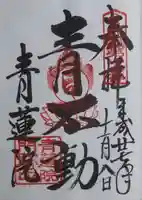 奉拝
平成廿七年
十一月八日
青不動
青蓮院